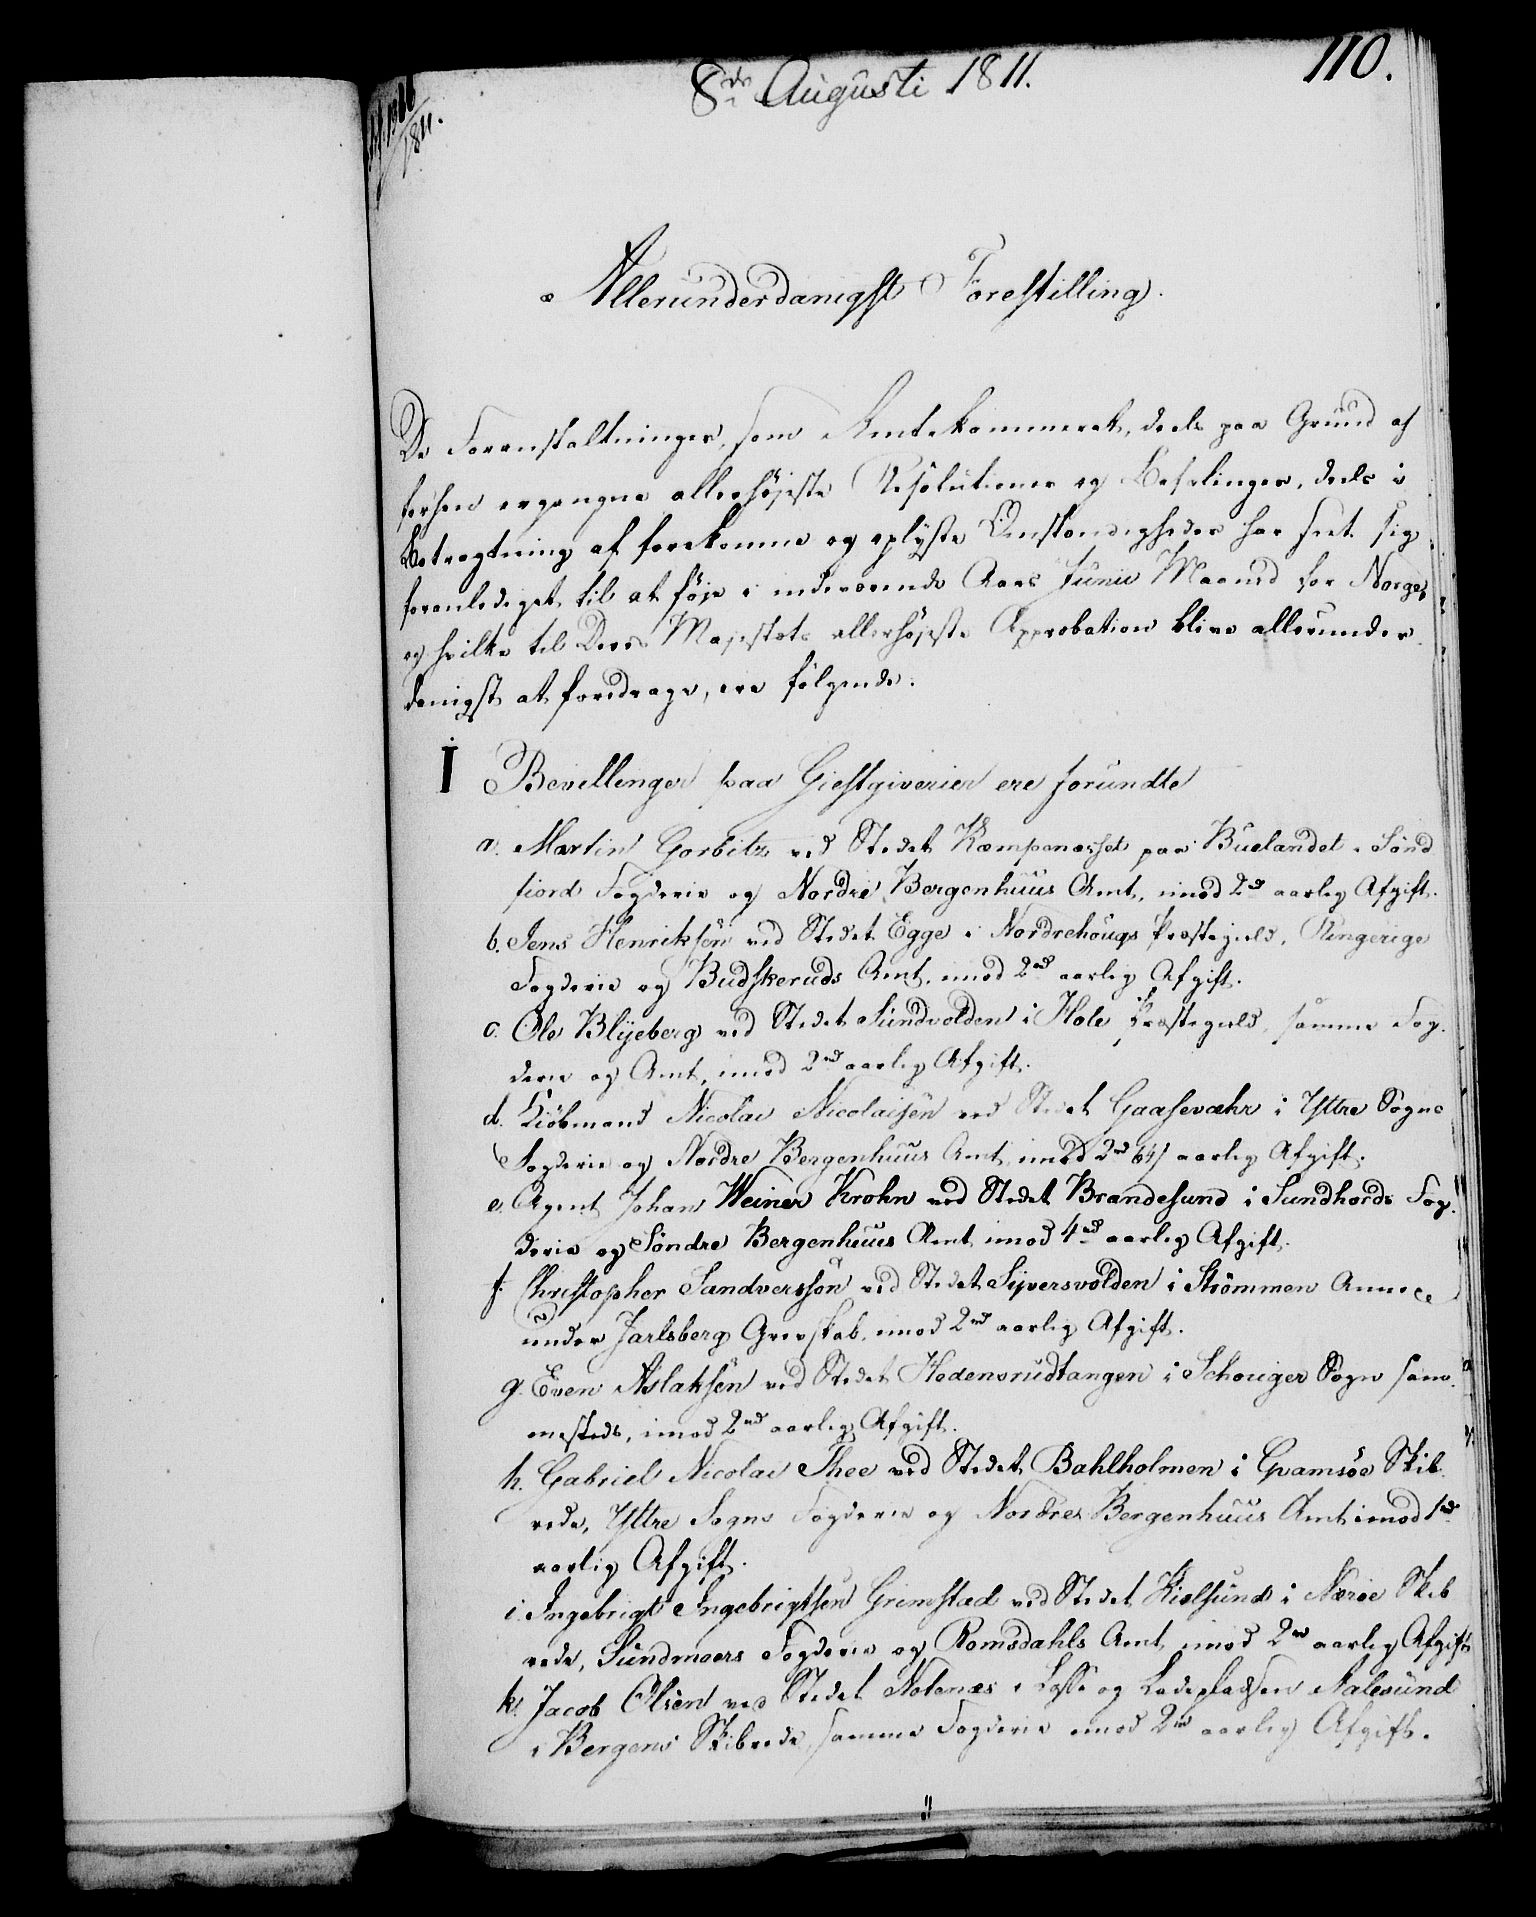 8de Augusti 1811.
110.
1811.
Allerunderdanigst Forestilling.
De Foranstaltninger, som Rentekammeret, deels paa Grund af
forhen ergangne allerhøjeste Resolutioner og Befalinger, deels i
Betragtning af forekomne og oplyste Omstændigheder har seet sig
foranlediget til at føje i indeværende Aars Junii Maaned for Norge,
og hvilke til Deres Majestæts allerhøjeste Approbation blive allerunder-
danigst at foredrage, ere følgende:
I Bevillinger paa Giestgiverier ere forundte
a. Martin Gorbitz ved Stedet Kempenæsset paa Buelandet i Sönd
fiord Fogderie og Nordre Bergenhuus Amt, imod 2rd aarlig Afgift.
b. Jens Henriksön ved Stedet Egge i Nordrehougs Præstegield, Ringerige
Fogderie og Budskeruds Amt, imod 2rd aarlig Afgift.
c. Ole Blyeberg ved Stedet Sundvolden i Hole Præstegield, samme Fog-
derie og Amt, imod 2rd aarlig Afgift.
d. Kiöbmand Nicolai Nicolaisen ved Stedet Gaasevæhr i Yttre Sogns
Fogderie og Nordre Bergenhuus Amt imod 2rd 64s aarlig Afgift.
e. Agent Johan Weiner Krohn ved Stedet Brandesund i Sundhords Fog-
derie og Söndre Bergenhuus Amt imod 4rd aarlig Afgift.
f. Christopher Sandversson ved Stedet Syversvolden i Strömmen Annex
under Jarlsberg Grevskab, imod 2rd aarlig Afgift.
g. Even Aslaksen ved Stedet Hedensrudtangen i Schouger Sogn sam-
mesteds, imod 2rd aarlig Afgift.
h. Gabriel Nicolai Thee ved Stedet Bahlholmen i Qvamsöe Skib-
rede, Yttre Sogns Fogderie og Nordre Bergenhuus Amt imod 1rd
aarlig Afgift.
i. Ingebrigt Ingebrigtsen Grimstad ved Stedet Kielsund i Næröe Skib
rede, Sundmoers Fogderie og Romsdahls Amt, imod 2rd aarlig Afgift
k. Jacob Olsen ved Stedet Notenæs i Losse og Ladepladsen Aalesund
i Bergens Skibrede, samme Fogderie imod 2rd aarlig Afgift.